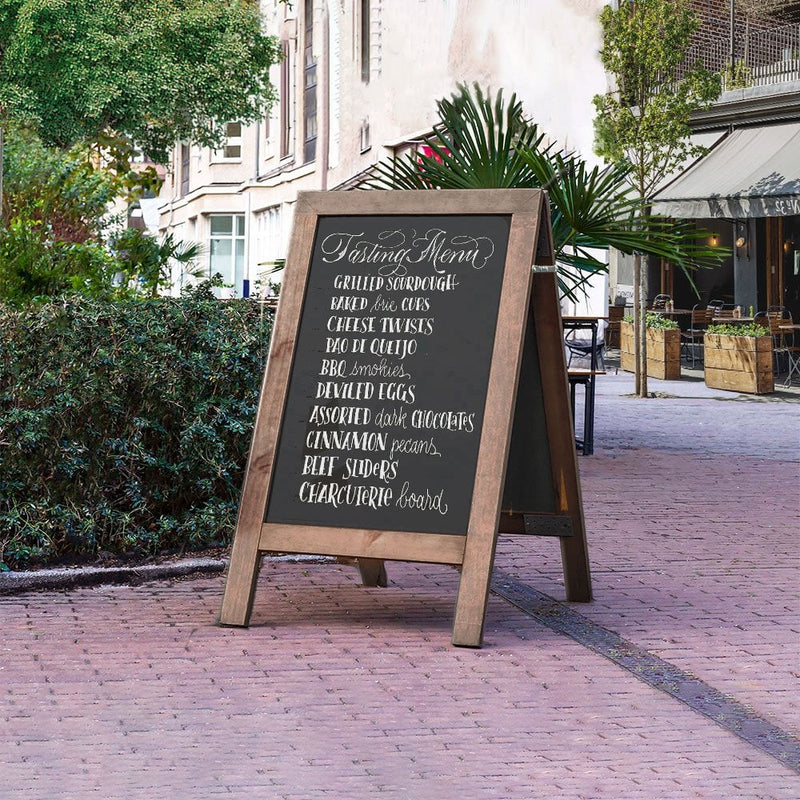 Tasting Menu
GRILLED SOURDOUGH
BAKED brie CUPS
CHEESE TWISTS
PAO DE QUEIJO
BBQ smokies
DEVILED EGGS
ASSORTED dark CHOCOLATES
CINNAMON pecans
BEEF SLIDERS
CHARCUTERIE board